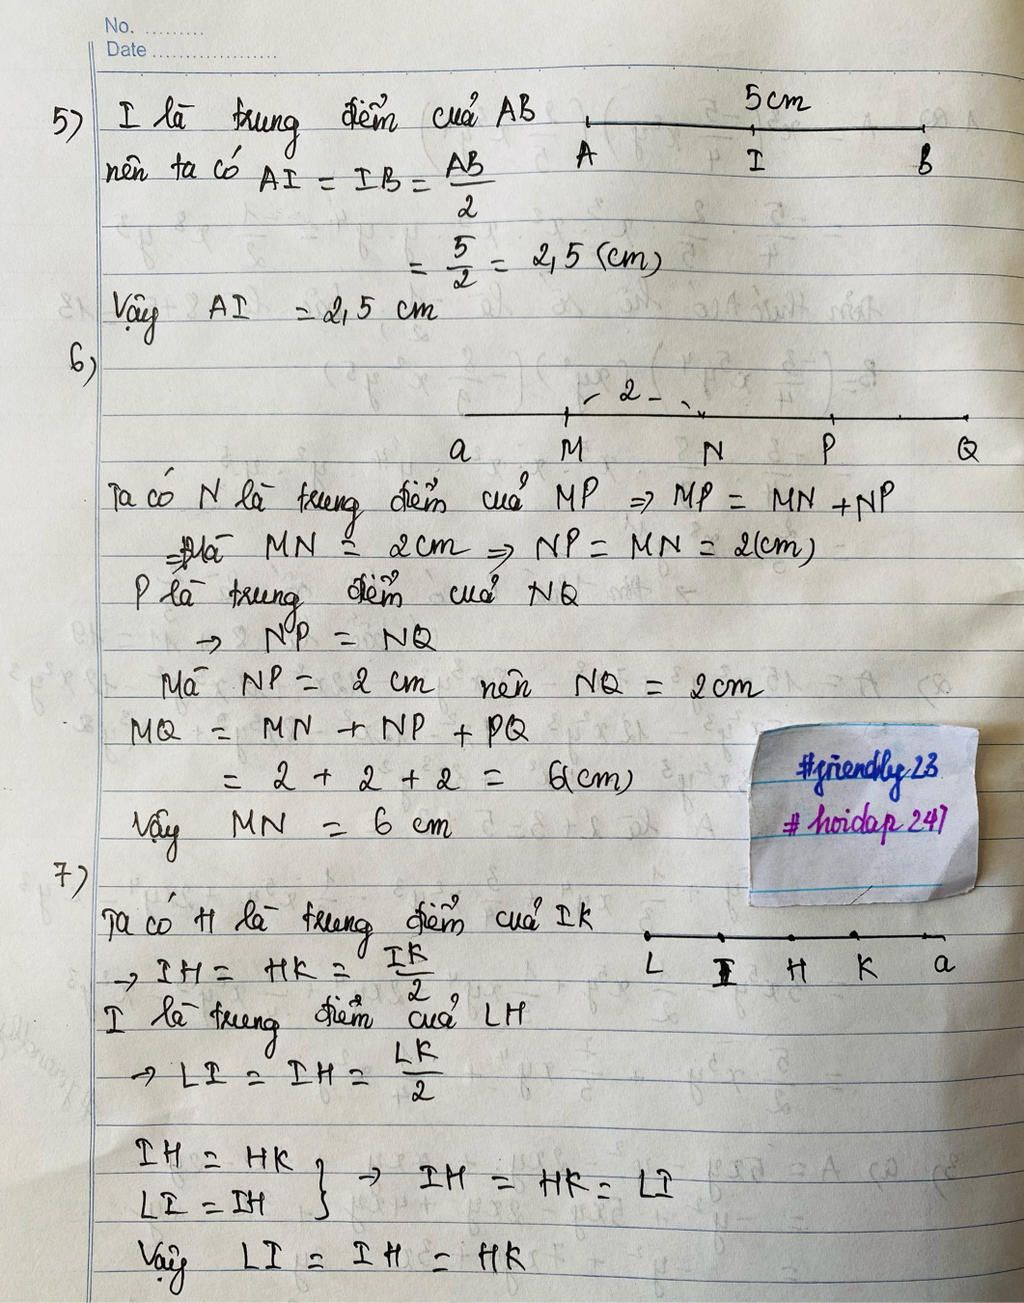 No. .........
Date ...................
5) I là trung điểm của AB
5cm
A I B
nên ta có AI = IB = AB/2
= 5/2 = 2,5 (cm)
Vậy AI = 2,5 cm
6)
2
a M N P Q
Ta có N là trung điểm của MP => MP = MN + NP
Mà MN = 2cm => NP = MN = 2(cm)
P là trung điểm của NQ
→ NP = NQ
Mà NP = 2 cm nên NQ = 2cm
MQ = MN + NP + PQ
= 2 + 2 + 2 = 6(cm)
Vậy MN = 6 cm
#friendly23
# hoidap 247
7)
Ta có H là trung điểm của IK
L I H K a
→ IH = HK = IK/2
I là trung điểm của LH
→ LI = IH = LK/2
IH = HK
LI = IH } → IH = HK = LI
Vậy LI = IH = HK